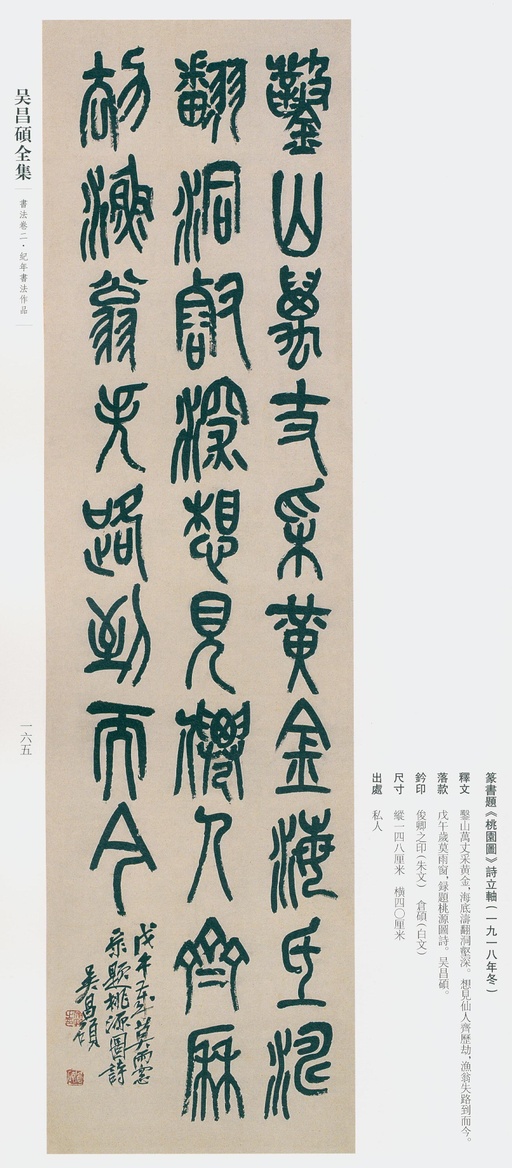 篆書題《桃園圖》詩立軸(一九一八年冬)
釋文 鑿山萬丈采黃金,海底濤翻洞壑深。想見仙人齊歷劫,漁翁失路到而今。
落款 戊午歲莫雨窗,録題桃源圖詩。吴昌碩。
鈐印 俊卿之印(朱文) 倉碩(白文)
尺寸 縱一四八厘米 橫四〇厘米
出處 私人
鑿山萬丈采黃金海底濤
翻洞壑深想見僊人齊厤
劫漁翁失路到而今
戊午歲莫雨窗
录題桃源圖詩
吴昌碩
吴昌碩全集
書法卷二·紀年書法作品
一六五